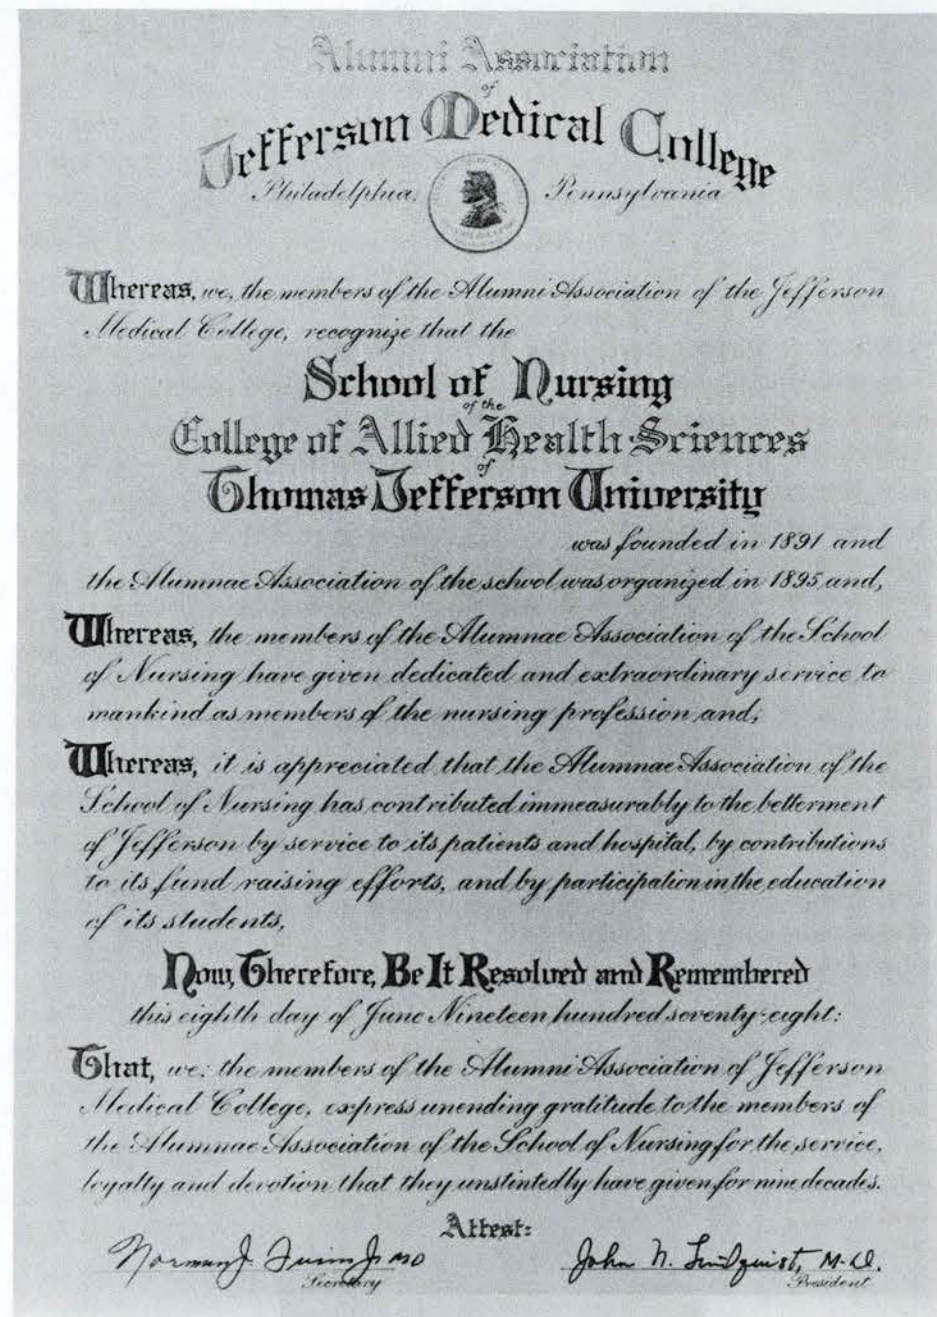 Alumni Association
of
Jefferson Medical College
Philadelphia, Pennsylvania
Whereas, we, the members of the Alumni Association of the Jefferson
Medical College, recognize that the
School of Nursing
of the
College of Allied Health Sciences
of
Thomas Jefferson University
was founded in 1891 and
the Alumnae Association of the school was organized in 1895 and,
Whereas, the members of the Alumnae Association of the School
of Nursing have given dedicated and extraordinary service to
mankind as members of the nursing profession and;
Whereas, it is appreciated that the Alumnae Association of the
School of Nursing has contributed immeasurably to the betterment
of Jefferson by service to its patients and hospital, by contributions
to its fund raising efforts, and by participation in the education
of its students,
Now, Therefore, Be It Resolved and Remembered
this eighth day of June Nineteen hundred seventy-eight:
That, we, the members of the Alumni Association of Jefferson
Medical College, express unending gratitude to the members of
the Alumnae Association of the School of Nursing for the service,
loyalty and devotion that they unstintedly have given for nine decades.
Attest:
Norman J. Jr MD John N. Lindquist, M.D.
Secretary President